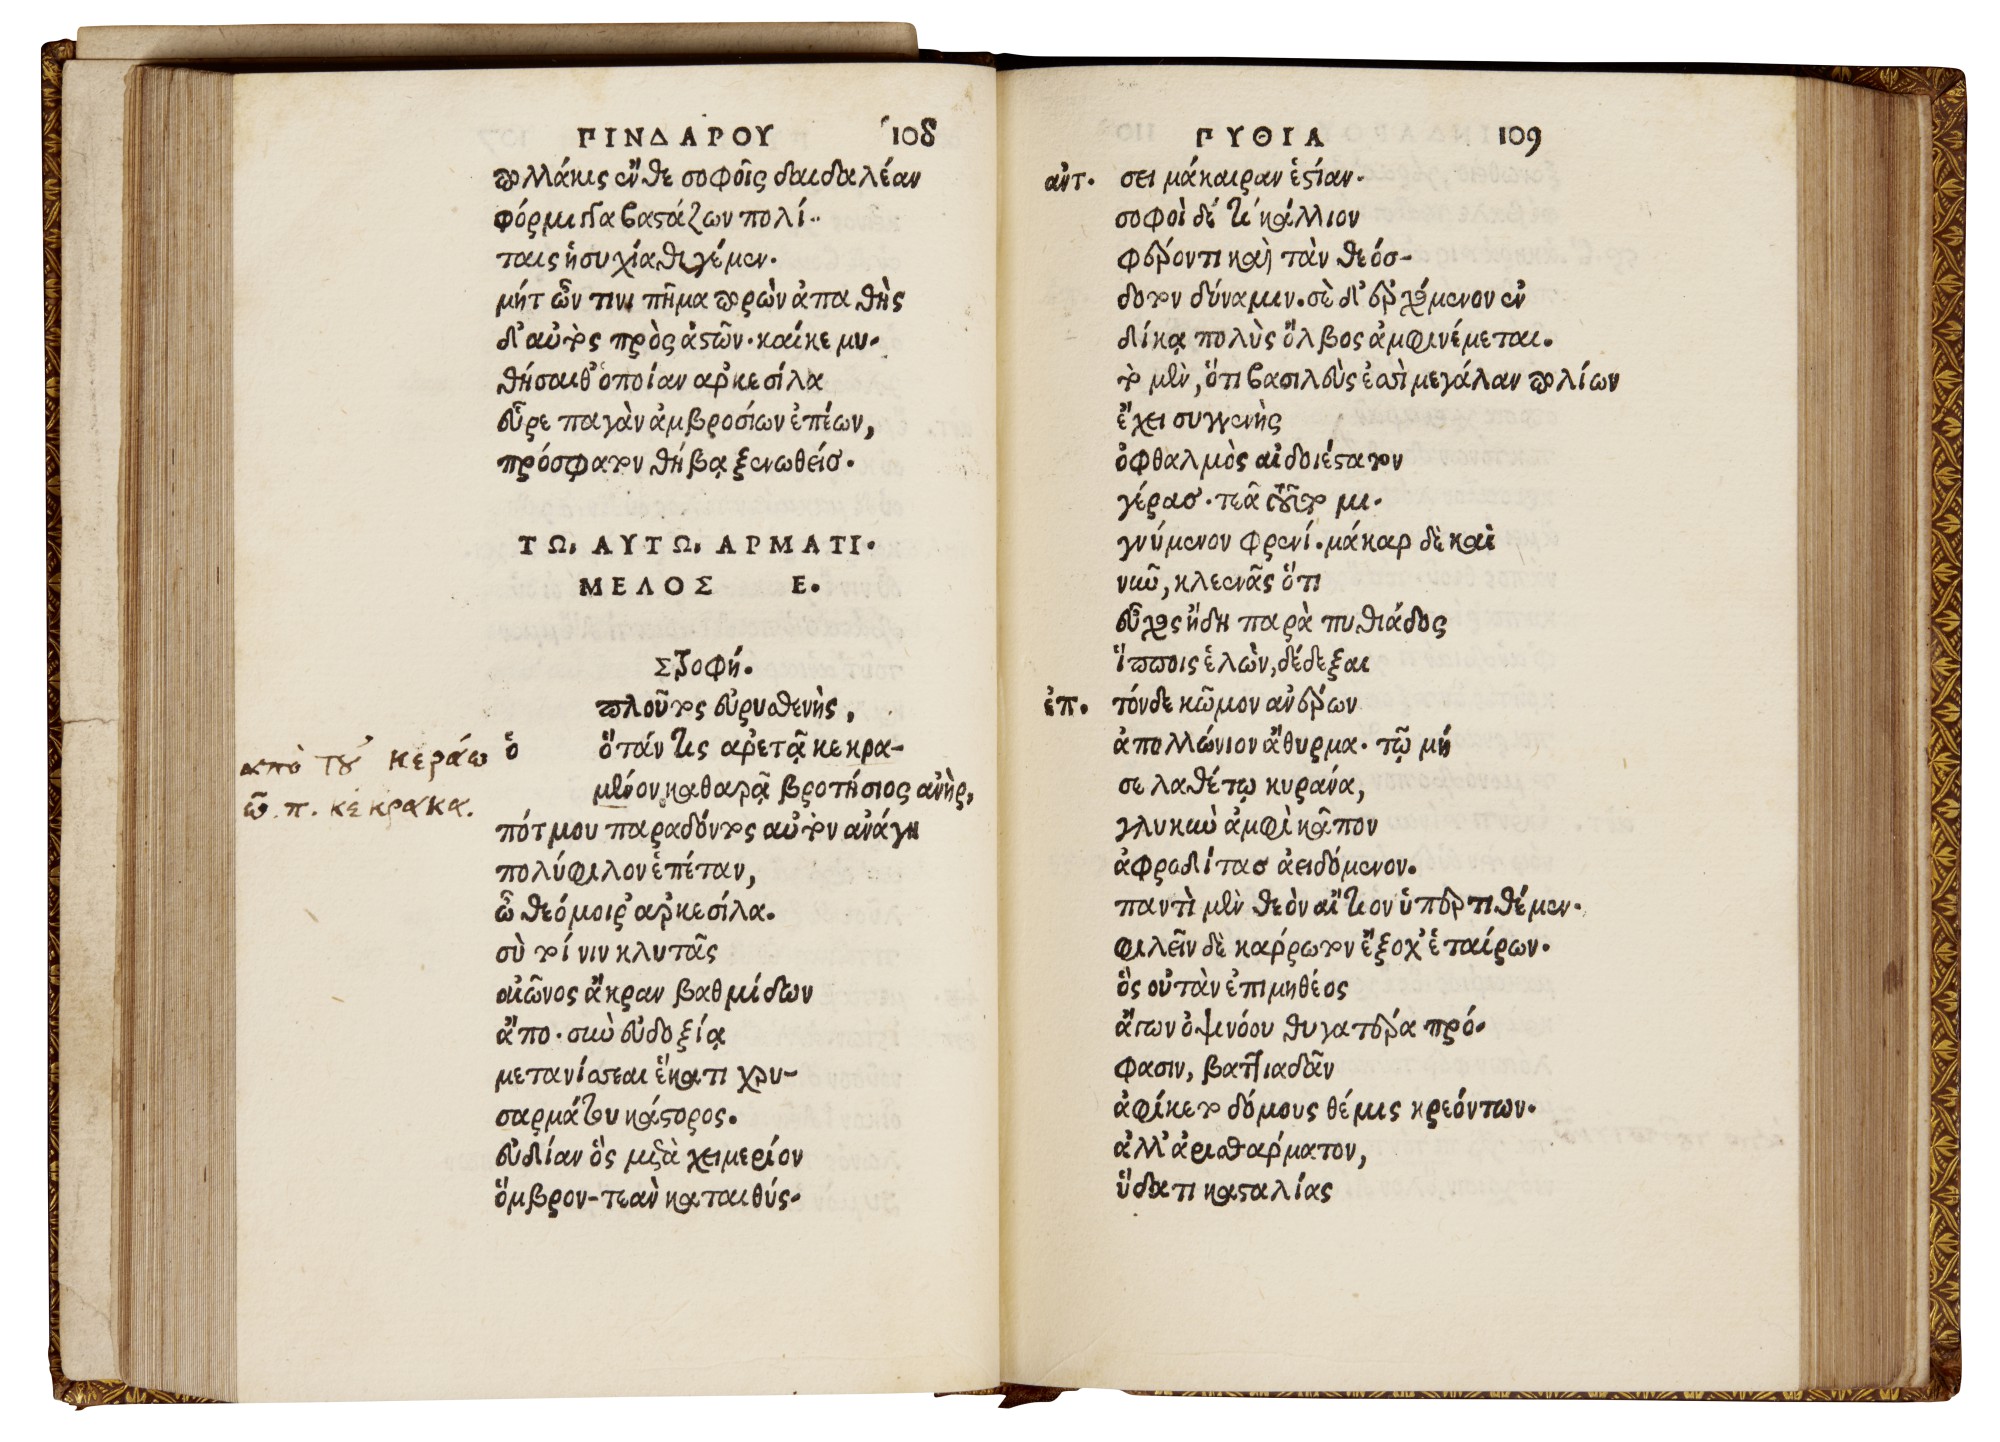 ΠΙΝΔΑΡΟΥ 108
πολλάκις ἔν τε σοφοῖς δαιδαλέαν
φόρμιγγα βαστάζων πολί-
ταις ἡσυχία θιγέμεν.
μήτ ὦν τινι πῆμα πορὼν ἀπαθὴς
δ' αὐτὸς πρὸς ἀστῶν. καί κε μυ-
θήσαιθ' ὁποίαν ἀρκεσίλα
εὗρε παγὰν ἀμβροσίων ἐπέων,
πρόσφατον θήβᾳ ξενωθείσ.
ΤΩ, ΑΥΤΩ, ΑΡΜΑΤΙ.
ΜΕΛΟΣ Ε.
Στροφή.
πλοῦτος εὐρυσθενὴς,
ὁ ὅτάν τις ἀρετᾷ κεκρα-
μένον καθαρᾷ βροτήσιος ἀνὴρ,
ἀπὸ τοῦ κεράω
ῶ. π. κέκρακα.
πότμου παραδόντος αὐτὸν ἀνάγη
πολύφιλον ἑπέταν,
ὦ θεόμοιρ' ἀρκεσίλα.
σὺ τοί νιν κλυτᾶς
αἰῶνος ἄκραν βαθμίδων
ἄπο. σὺν εὐδοξίᾳ
μετανίσεαι ἕκατι χρυ-
σαρμάτου κάστορος.
εὐδίαν ὃς μετὰ χειμερίον
ὄμβρον-τεὰν καταιθύσ-
ΠΥΘΙΑ 109
ἀντ. σει μάκαιραν ἑστίαν.
σοφοὶ δέ τι κάλλιον
φέροντι καὶ τὰν θεόσ-
δοτον δύναμιν. σὲ δ' ἐρχόμενον ἐν
δίκᾳ πολὺς ὄλβος ἀμφινέμεται.
τὸ μὲν, ὅτι βασιλεὺς ἐσσὶ μεγάλαν πολίων
ἔχει συγγενὴς
ὀφθαλμὸς αἰδοιέστατον
γέρασ. τεᾶ τοῦτο μι-
γνύμενον φρενί. μάκαρ δὲ καὶ
νῦν, κλεενᾶς ὅτι
εὖχος ἤδη παρὰ πυθιάδος
ἵπποις ἑλὼν, δέδεξαι
ἐπ. τόνδε κῶμον ἀνέρων
ἀπολλώνιον ἄθυρμα. τῷ μή
σε λαθέτω κυράνα,
γλυκὺν ἀμφὶ κᾶπον
ἀφροδίτασ ἀειδόμενον.
παντὶ μὲν θεὸν αἴτιον ὑπερτιθέμεν.
φιλεῖν δὲ κάρρωτον ἔξοχ' ἑταίρων.
ὃς οὐ τὰν ἐπιμηθέος
ἄγων ὀψινόου θυγατέρα πρό-
φασιν, βαττιαδᾶν
ἀφίκετο δόμους θέμις κρεόντων.
ἀλλ' ἀρισθάρματον,
ὕδατι κασταλίας